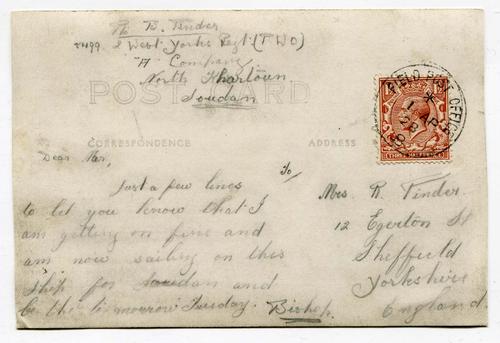 Pte B. Tinder
2 West Yorks Regt (TWO)
"A" Company
North Khartoum
Soudan
POST CARD
CORRESPONDENCE
ADDRESS
FIELD POST OFFICE
1 AP
28
Dear Mer,
Just a few lines
to let you know that I
am getting on fine and
am now sailing on this
ship for Soudan and
be the tomorrow Tuesday. Bishop.
To
Mrs R. Tinder
12 Egerton St
Sheffield
Yorkshire
England